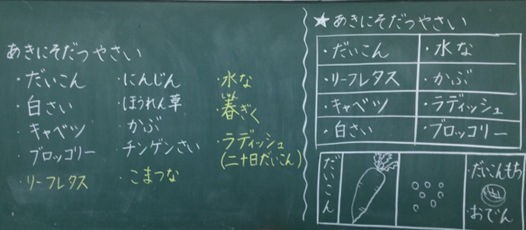 あきにそだつやさい
・だいこん
・白さい
・キャベツ
・ブロッコリー
・リーフレタス
・にんじん
・ほうれん草
・かぶ
・チンゲンさい
・こまつな
・水な
・春ぎく
・ラディッシュ
(二十日だいこん)
★あきにそだつやさい
・だいこん
・水な
・リーフレタス
・かぶ
・キャベツ
・ラディッシュ
・白さい
・ブロッコリー
だいこん
だいこんもち
おでん